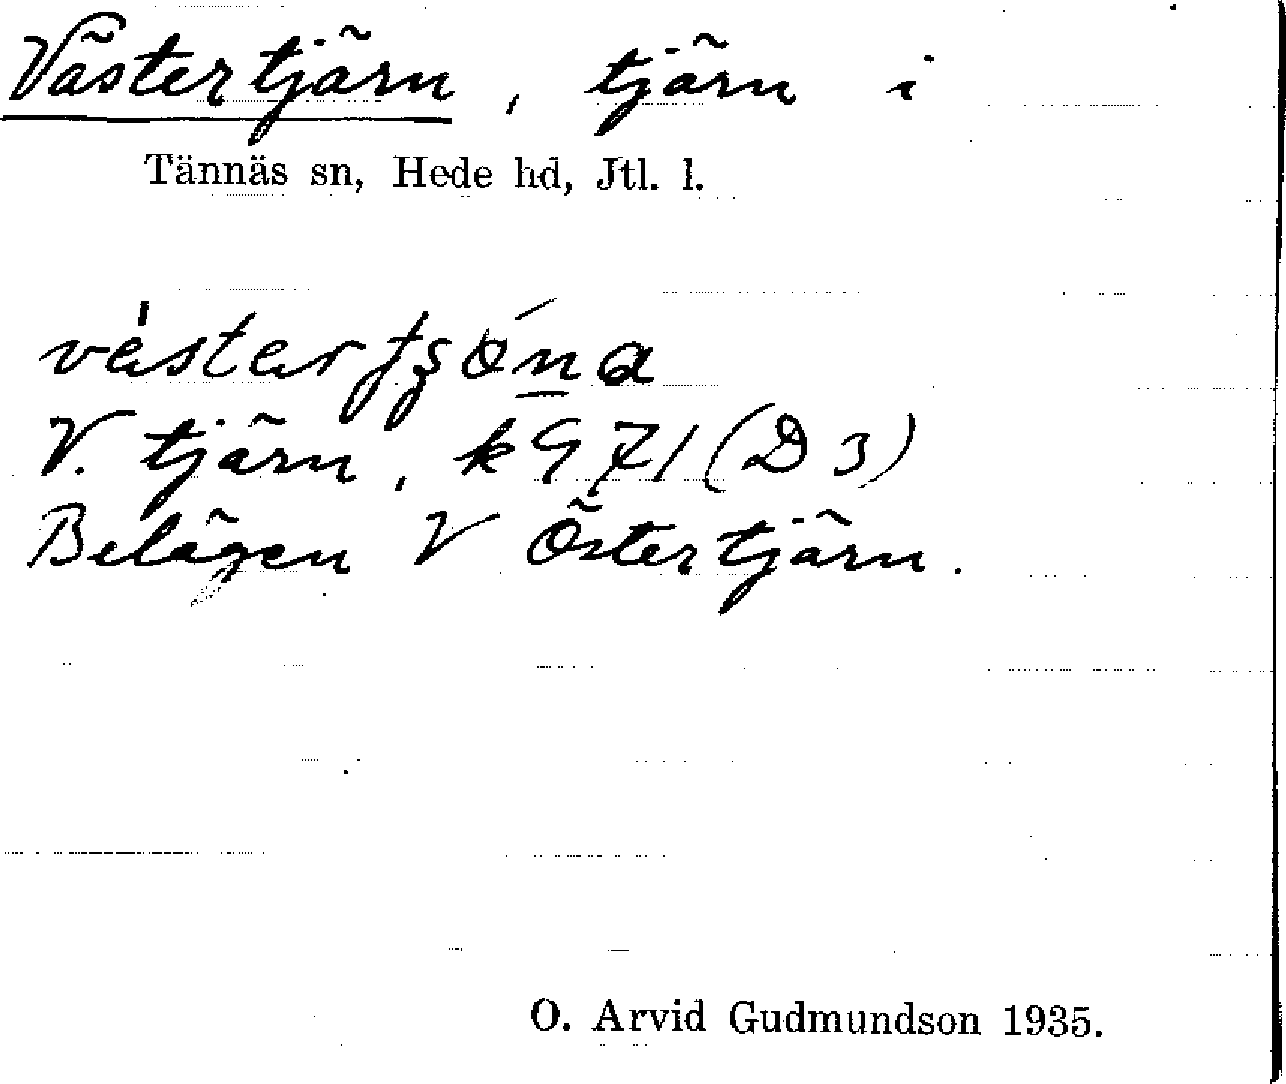 Västertjärn, tjärn i
Tännäs sn, Hede hd, Jtl. l.
V. tjärn, k 971 (D 3)
Belägen V Östertjärn.
O. Arvid Gudmundson 1935.